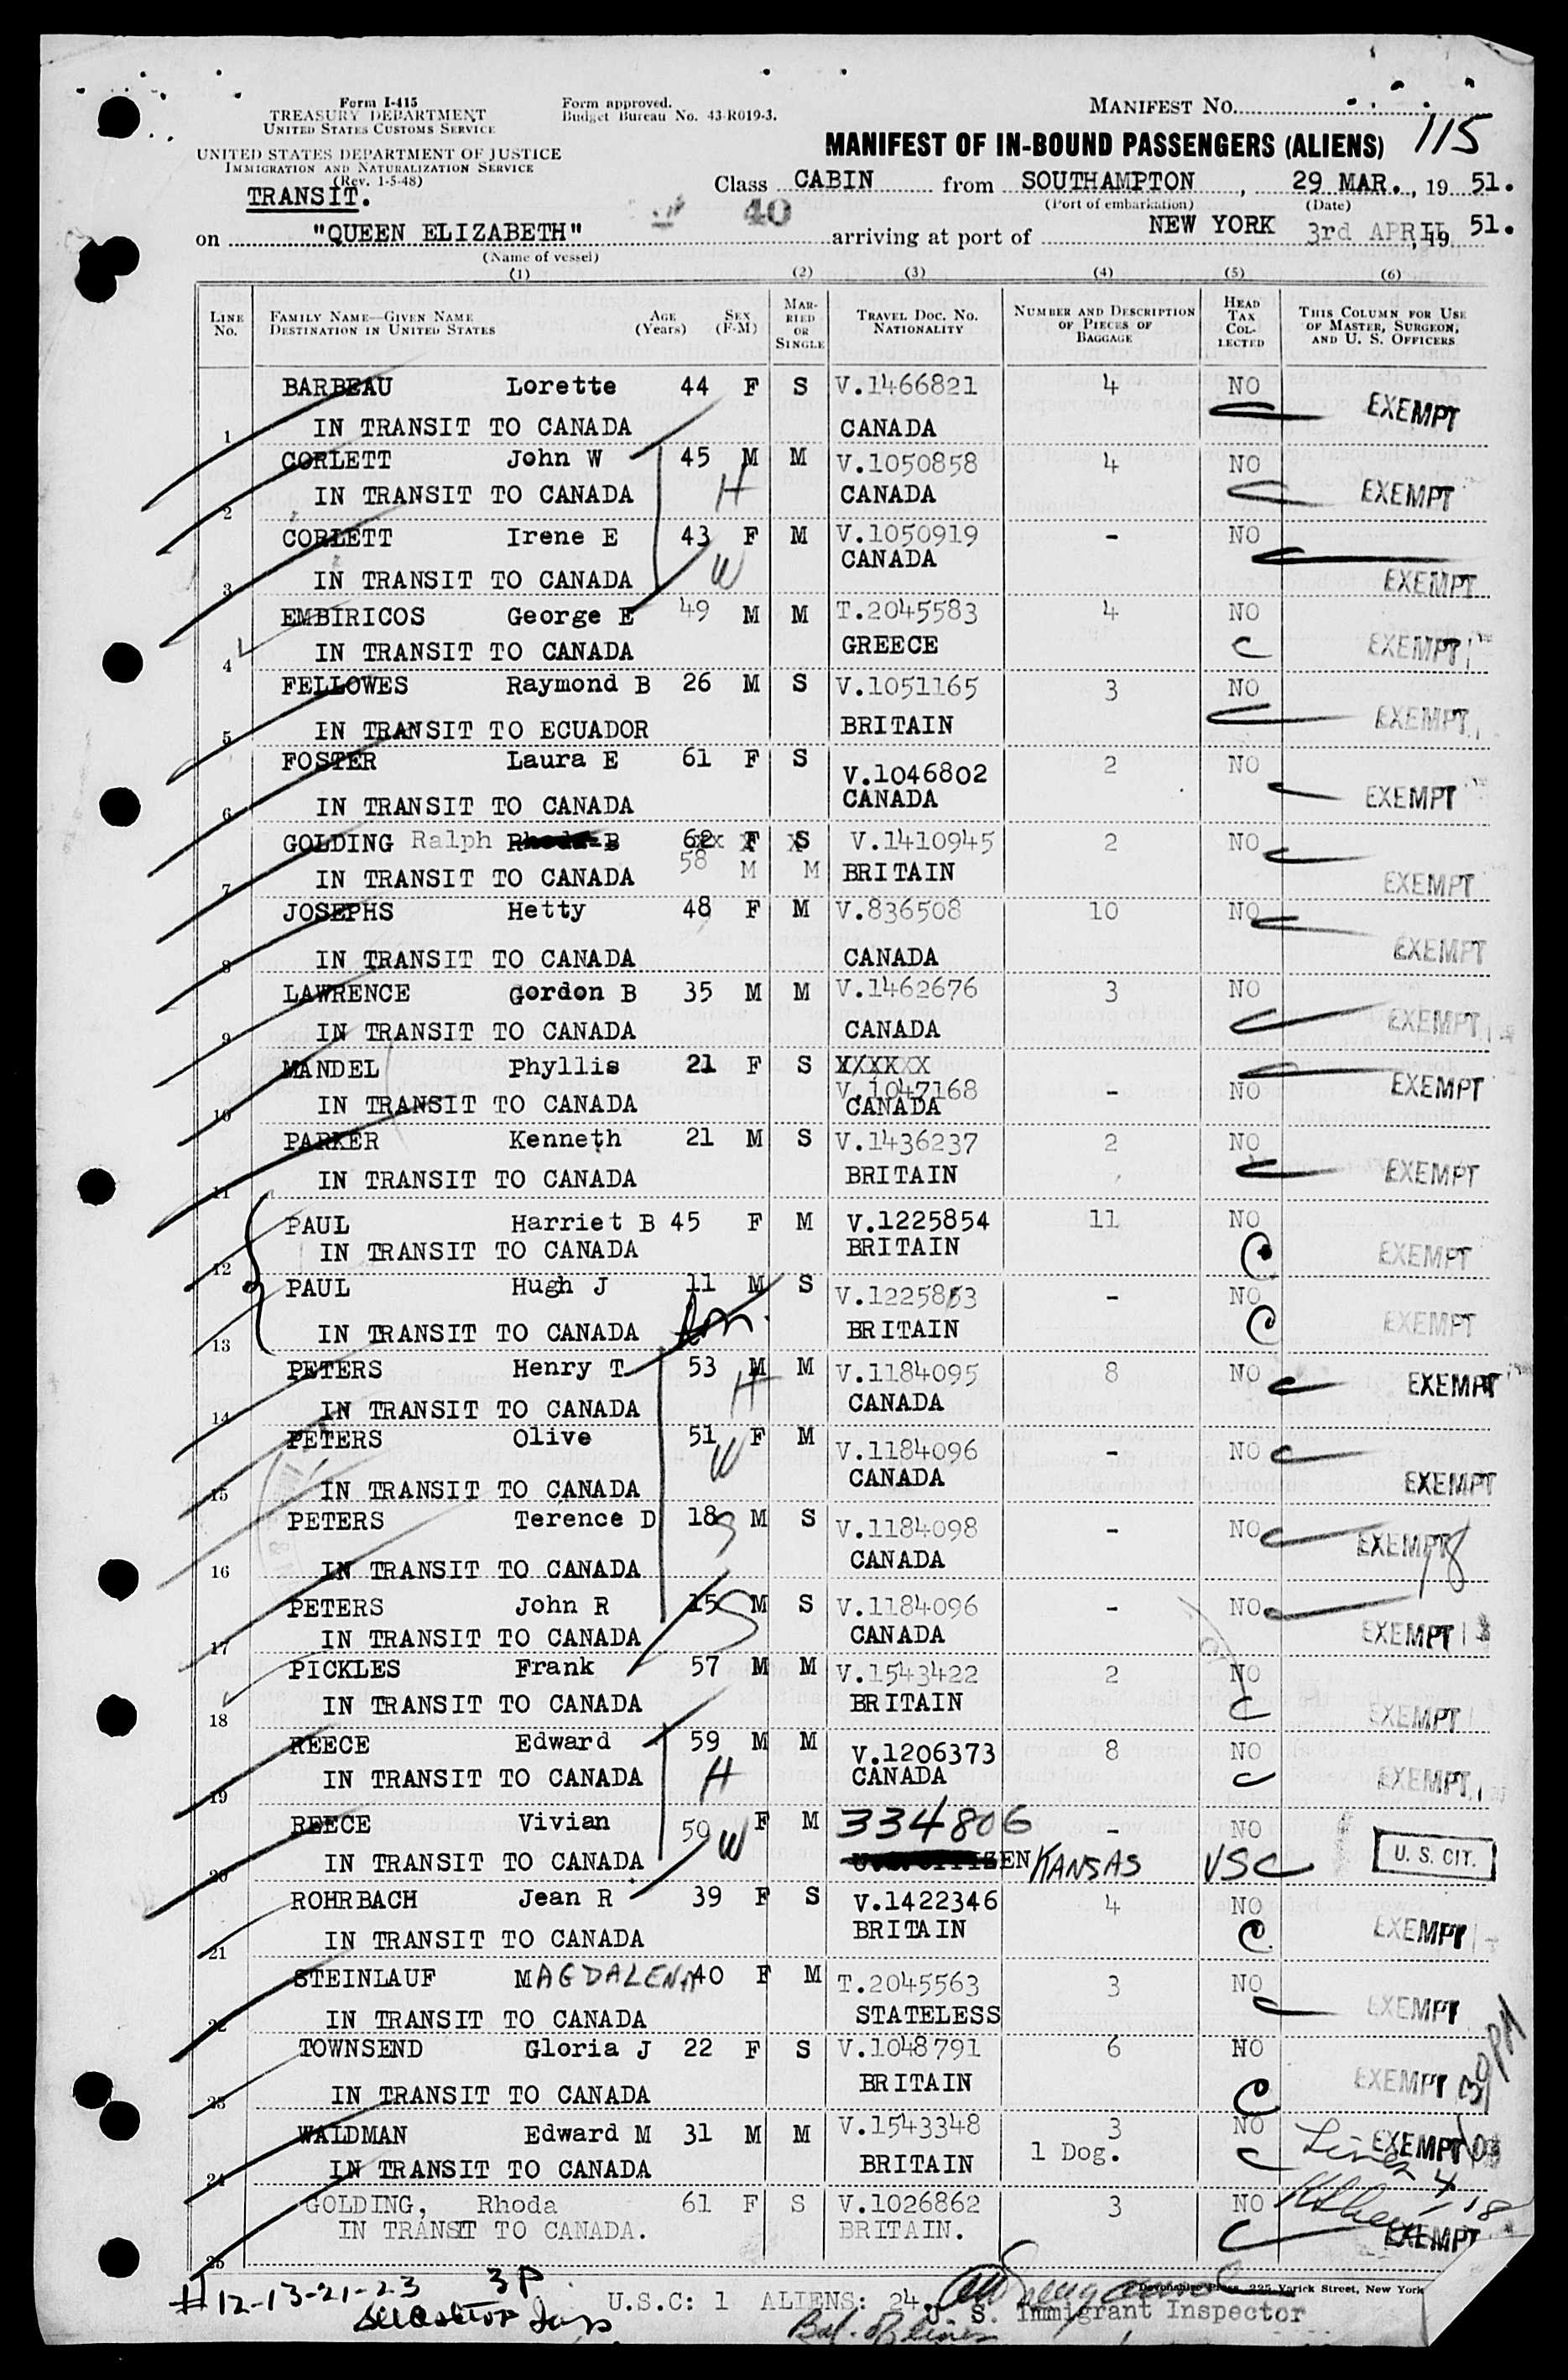 Form I-415
TREASURY DEPARTMENT
UNITED STATES CUSTOMS SERVICE
UNITED STATES DEPARTMENT OF JUSTICE
IMMIGRATION AND NATURALIZATION SERVICE
(Rev. 1-5-48)
TRANSIT.
Form approved.
Budget Bureau No. 43-R019-3.
MANIFEST NO.
115
MANIFEST OF IN-BOUND PASSENGERS (ALIENS)
Class CABIN from SOUTHAMPTON, 29 MAR., 19 51.
(Port of embarkation) (Date)
40
on "QUEEN ELIZABETH" arriving at port of NEW YORK 3rd APRIL, 19 51.
(Name of vessel)
(1) (2) (3) (4) (5) (6)
LINE No. FAMILY NAME—GIVEN NAME DESTINATION IN UNITED STATES AGE (Years) SEX (F-M) MARRIED OR SINGLE TRAVEL DOC. NO. NATIONALITY NUMBER AND DESCRIPTION OF PIECES OF BAGGAGE HEAD TAX COLLECTED THIS COLUMN FOR USE OF MASTER, SURGEON, AND U. S. OFFICERS
BARBEAU Lorette 44 F S V.1466821 4 NO EXEMPT
1 IN TRANSIT TO CANADA CANADA
CORLETT John W 45 M M V.1050858 4 NO
2 IN TRANSIT TO CANADA H CANADA EXEMPT
CORLETT Irene E 43 F M V.1050919 - NO
3 IN TRANSIT TO CANADA W CANADA EXEMPT
EMBIRICOS George E 49 M M T.2045583 4 NO
4 IN TRANSIT TO CANADA GREECE C EXEMPT
FELLOWES Raymond B 26 M S V.1051165 3 NO
5 IN TRANSIT TO ECUADOR BRITAIN EXEMPT
FOSTER Laura E 61 F S V.1046802 2 NO
6 IN TRANSIT TO CANADA CANADA EXEMPT
GOLDING Ralph 62 F S V.1410945 2 NO
58 M M
7 IN TRANSIT TO CANADA BRITAIN EXEMPT
JOSEPHS Hetty 48 F M V.836508 10 NO
8 IN TRANSIT TO CANADA CANADA EXEMPT
LAWRENCE Gordon B 35 M M V.1462676 3 NO
9 IN TRANSIT TO CANADA CANADA EXEMPT
MANDEL Phyllis 21 F S XXXXXX
V.1047168 - NO EXEMPT
10 IN TRANSIT TO CANADA CANADA
PARKER Kenneth 21 M S V.1436237 2 NO
11 IN TRANSIT TO CANADA BRITAIN EXEMPT
PAUL Harriet B 45 F M V.1225854 11 NO
12 IN TRANSIT TO CANADA BRITAIN C EXEMPT
PAUL Hugh J 11 M S V.1225853 - NO
13 IN TRANSIT TO CANADA BRITAIN C EXEMPT
PETERS Henry T 53 M M V.1184095 8 NO EXEMPT
14 IN TRANSIT TO CANADA H CANADA
PETERS Olive 51 F M V.1184096 - NO
15 IN TRANSIT TO CANADA W CANADA EXEMPT
PETERS Terence D 18 S M S V.1184098 - NO EXEMPT
16 IN TRANSIT TO CANADA CANADA 18
PETERS John R 15 S M S V.1184096 - NO
17 IN TRANSIT TO CANADA CANADA EXEMPT
PICKLES Frank 57 M M V.1543422 2 NO
18 IN TRANSIT TO CANADA BRITAIN C EXEMPT
REECE Edward 59 M M V.1206373 8 NO
19 IN TRANSIT TO CANADA H CANADA C EXEMPT
REECE Vivian 50 F M 334806 - NO
20 IN TRANSIT TO CANADA W KANSAS USC U. S. CIT.
ROHRBACH Jean R 39 F S V.1422346 4 NO
21 IN TRANSIT TO CANADA BRITAIN C EXEMPT
STEINLAUF MAGDALENA 40 F M T.2045563 3 NO
22 IN TRANSIT TO CANADA STATELESS EXEMPT
TOWNSEND Gloria J 22 F S V.1048791 6 NO
23 IN TRANSIT TO CANADA BRITAIN C EXEMPT
WALDMAN Edward M 31 M M V.1543348 3 NO
1 Dog. C EXEMPT
24 IN TRANSIT TO CANADA BRITAIN
Lines 4
18
GOLDING, Rhoda 61 F S V.1026862 3 NO
IN TRANSIT TO CANADA. BRITAIN. EXEMPT
25
#12-13-21-23 3P
U.S.C: 1 ALIENS: 24.
Devonshire Press, 225 Varick Street, New York
U. S. Immigrant Inspector
Bal. of lines